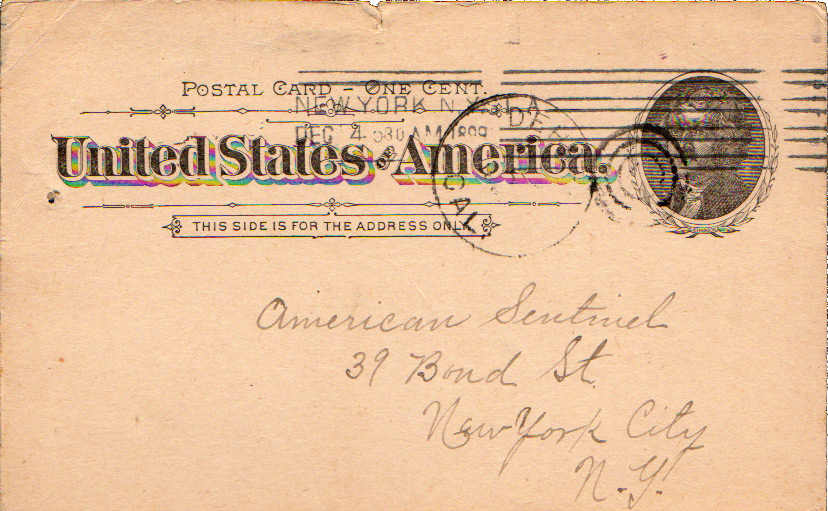 POSTAL CARD – ONE CENT.
NEW YORK, N.Y.
DEC 4 530 AM 1899
United States of America.
CAL.
THIS SIDE IS FOR THE ADDRESS ONLY.
American Sentinel
39 Bond St.
New York City
N.Y.